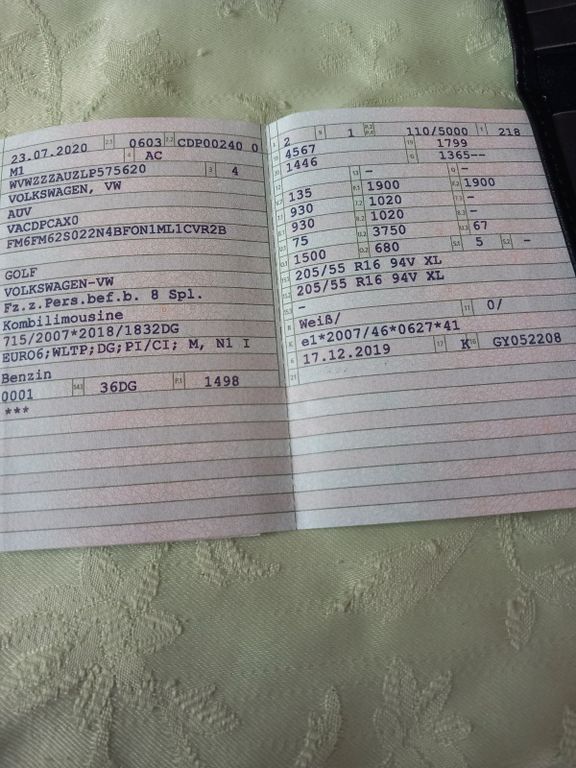 23.07.2020 2.1 0603 2.2 CDP00240 0
M1 4 AC
WVWZZZAUZLP575620 3 4
VOLKSWAGEN, VW
AUV
VACDPCAX0
FM6FM62S022N4BFON1ML1CVR2B
GOLF
VOLKSWAGEN-VW
Fz.z.Pers.bef.b. 8 Spl.
Kombilimousine
715/2007*2018/1832DG
EURO6;WLTP;DG;PI/CI; M, N1 I
Benzin
0001 36DG P.1 1498
***
2 9 1 110/5000 T 218
4567 1799
1446 G 1365--
- -
135 1900 1900
930 1020 -
930 1020 -
75 3750 67
1500 680 S.1 5 S.2 -
205/55 R16 94V XL
205/55 R16 94V XL
-
Weiß/ 11 0/
e1*2007/46*0627*41
17.12.2019 17 K 16 GY052208
21